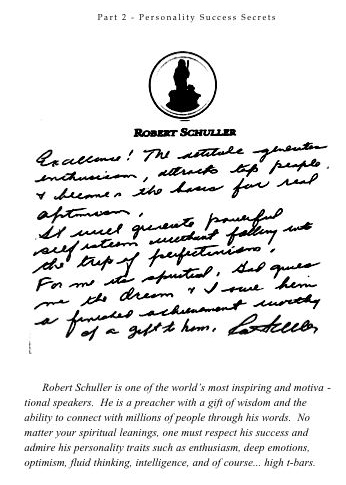 Part 2 - Personality Success Secrets
ROBERT SCHULLER
Excellence! The attitude generates
enthusiasm, attracts top people,
& becomes the basis for real
optimism.
It will generate powerful
self esteem without falling into
the trap of perfectionism.
For me its spiritual, God gives
me the dream & I owe him
a finished achievement worthy
of a gift to him.
Robert Schuller is one of the world's most inspiring and motiva -
tional speakers. He is a preacher with a gift of wisdom and the
ability to connect with millions of people through his words. No
matter your spiritual leanings, one must respect his success and
admire his personality traits such as enthusiasm, deep emotions,
optimism, fluid thinking, intelligence, and of course... high t-bars.